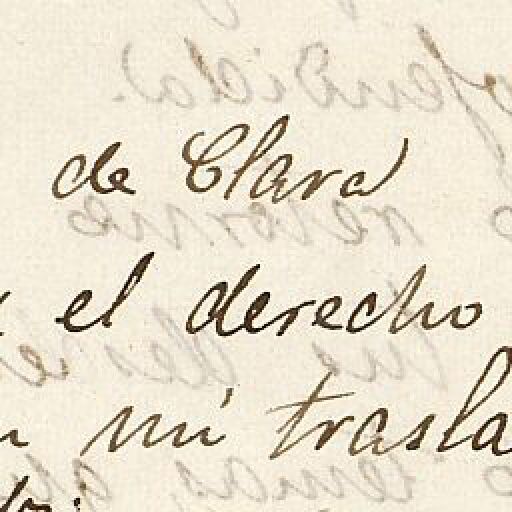 de Clara
el derecho
mi trasla